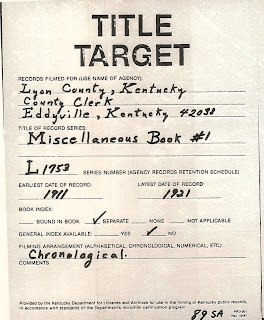 TITLE
TARGET
RECORDS FILMED FOR (USE NAME OF AGENCY):
Lyon County, Kentucky
County Clerk
Eddyville, Kentucky 42038
TITLE OF RECORD SERIES:
Miscellaneous Book #1
L 1753 SERIES NUMBER (AGENCY RECORDS RETENTION SCHEDULE)
EARLIEST DATE OF RECORD: LATEST DATE OF RECORD:
1911 1921
BOOK INDEX:
BOUND IN BOOK ✓ SEPARATE NONE NOT APPLICABLE
GENERAL INDEX AVAILABLE: YES ✓ NO
FILMING ARRANGEMENT (ALPHABETICAL, CHRONOLOGICAL, NUMERICAL, ETC.)
Chronological
COMMENTS
Provided by the Kentucky Department for Libraries and Archives for use in the filming of Kentucky public records,
in accordance with standards of the Department's microfilm certification program
89 SA